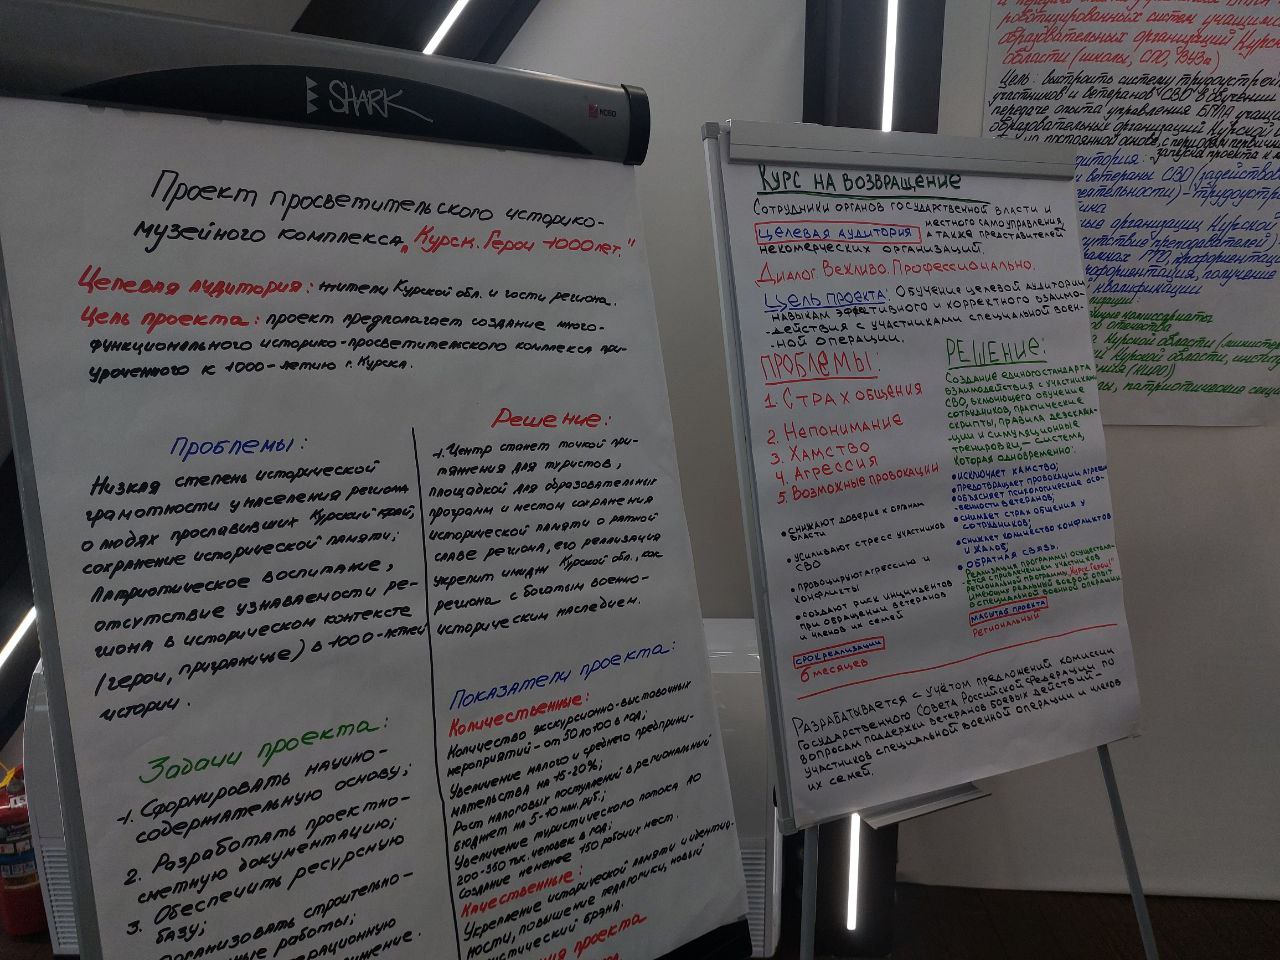 SHARK
NOBO
Проект просветительского историко-
музейного комплекса „Курск. Герои 1000 лет."
Целевая аудитория: жители Курской обл. и гости региона.
Цель проекта: проект предполагает создание много-
функционального историко-просветительского комплекса при-
уроченного к 1000-летию г. Курска.
Проблемы:
Низкая степень исторической
грамотности у населения региона
о людях прославивших Курский край,
сохранение исторической памяти;
Патриотическое воспитание,
отсутствие узнаваемости ре-
гиона в историческом контексте
(герои, приграничье) в 1000-летней
истории.
Задачи проекта:
1. Сформировать научно-
содержательную основу;
2. Разработать проектно-
сметную документацию;
3. Обеспечить ресурсную
базу;
строительно-
работы;
Решение:
1. Центр станет точкой при-
тяжения для туристов,
площадкой для образовательных
программ и местом сохранения
исторической памяти о ратной
славе региона, его реализация
укрепит имидж Курской обл., как
региона с богатым военно-
историческим наследием.
Показатели проекта:
Количественные:
Количество экскурсионно-выставочных
мероприятий - от 50 до 100 в год;
Увеличение малого и среднего предприни-
мательства на 15-20%;
Рост налоговых поступлений в региональный
бюджет на 5-10 млн. руб.;
Увеличение туристического потока до
200-350 тыс. человек в год;
Создание не менее 150 рабочих мест.
Качественные:
Укрепление исторической памяти и идентич-
ности, повышение педагогики, новый
туристический брэнд.
проекта
Курс на возвращение
Сотрудники органов государственной власти и
Целевая аудитория местного самоуправления,
а также представителей
некомерческих организаций.
Диалог. Вежливо. Профессионально.
Цель проекта: Обучение целевой аудитории
навыкам эффективного и корректного взаимо-
-действия с участниками специальной воен-
-ной операции.
Проблемы:
1. Страх общения
2. Непонимание
3. Хамство
4. Агрессия
5. Возможные провокации
• снижают доверие к органам
власти
• Усиливают стресс участников
СВО
• провоцируют агрессию и
конфликты
• создают риск инциндентов
при обращении ветеранов
и членов их семей
срок реализации
6 месяцев
Решение:
Создание единого стандарта
взаимодействия с участниками
СВО, включающего обучение
сотрудников, практические
скрипты, правила деэскала-
ции и симуляционные
тренировки, — система,
которая одновременно:
• исключает хамство;
• предотвращает провокации агрессии
• объясняет психологические осо-
бенности ветеранов;
• снимает страх общения у
сотрудников;
• снижает количество конфликтов
и жалоб;
• обратная связь.
Реализация программы осуществля-
ется с привлечением участников
региональной программы „Курск. Герои"
имеющих реальный боевой опыт
в специальной военной операции
масштаб проекта
Региональный
Разрабатывается с учётом предложений комиссии
Государственного Совета Российской Федерации по
вопросам поддержки ветеранов боевых действий-
участников специальной военной операции и членов
их семей.
роботизированных систем учащимся
образовательных организаций Курской
области (школы, СПО, ВУЗы)
Цель: выстроить систему трудоустрой
участников и ветеранов СВО в обучении
передаче опыта управления БПЛА учащи
образовательных организаций Курской
на постоянной основе, с периодом первичн
запуска проекта
ветераны СВО (задействов
деятельности) - трудоустр
организации Курской
преподавателей)
рамках ГТО, профориентаци
профориентация, получение
квалификации
комиссариаты
отечества
Курской области (министер
Курской области, институ
патриотические секц